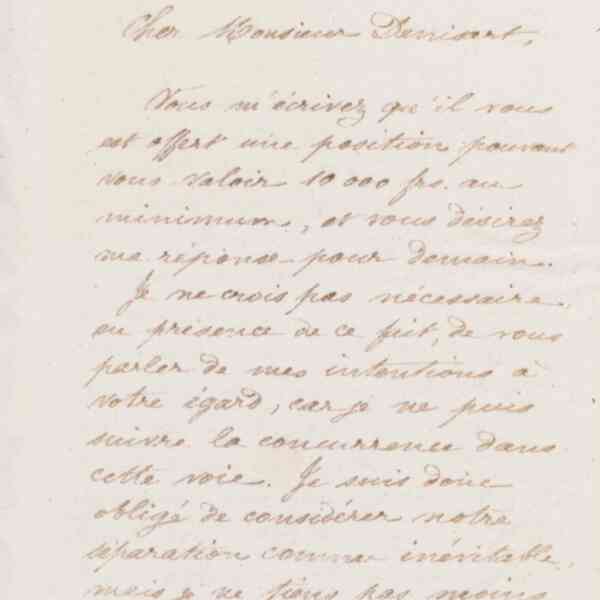 Cher Monsieur Denisart,
Vous m'écrivez qu'il vous
est offert une position pouvant
vous valoir 10 000 frs. au
minimum, et vous désirez
ma réponse pour demain.
Je ne crois pas nécessaire,
en présence de ce fait, de vous
parler de mes intentions à
votre égard, car je ne puis
suivre la concurrence dans
cette voie. Je suis donc
obligé de considérer notre
séparation comme inévitable,
mais je ne tiens pas moins